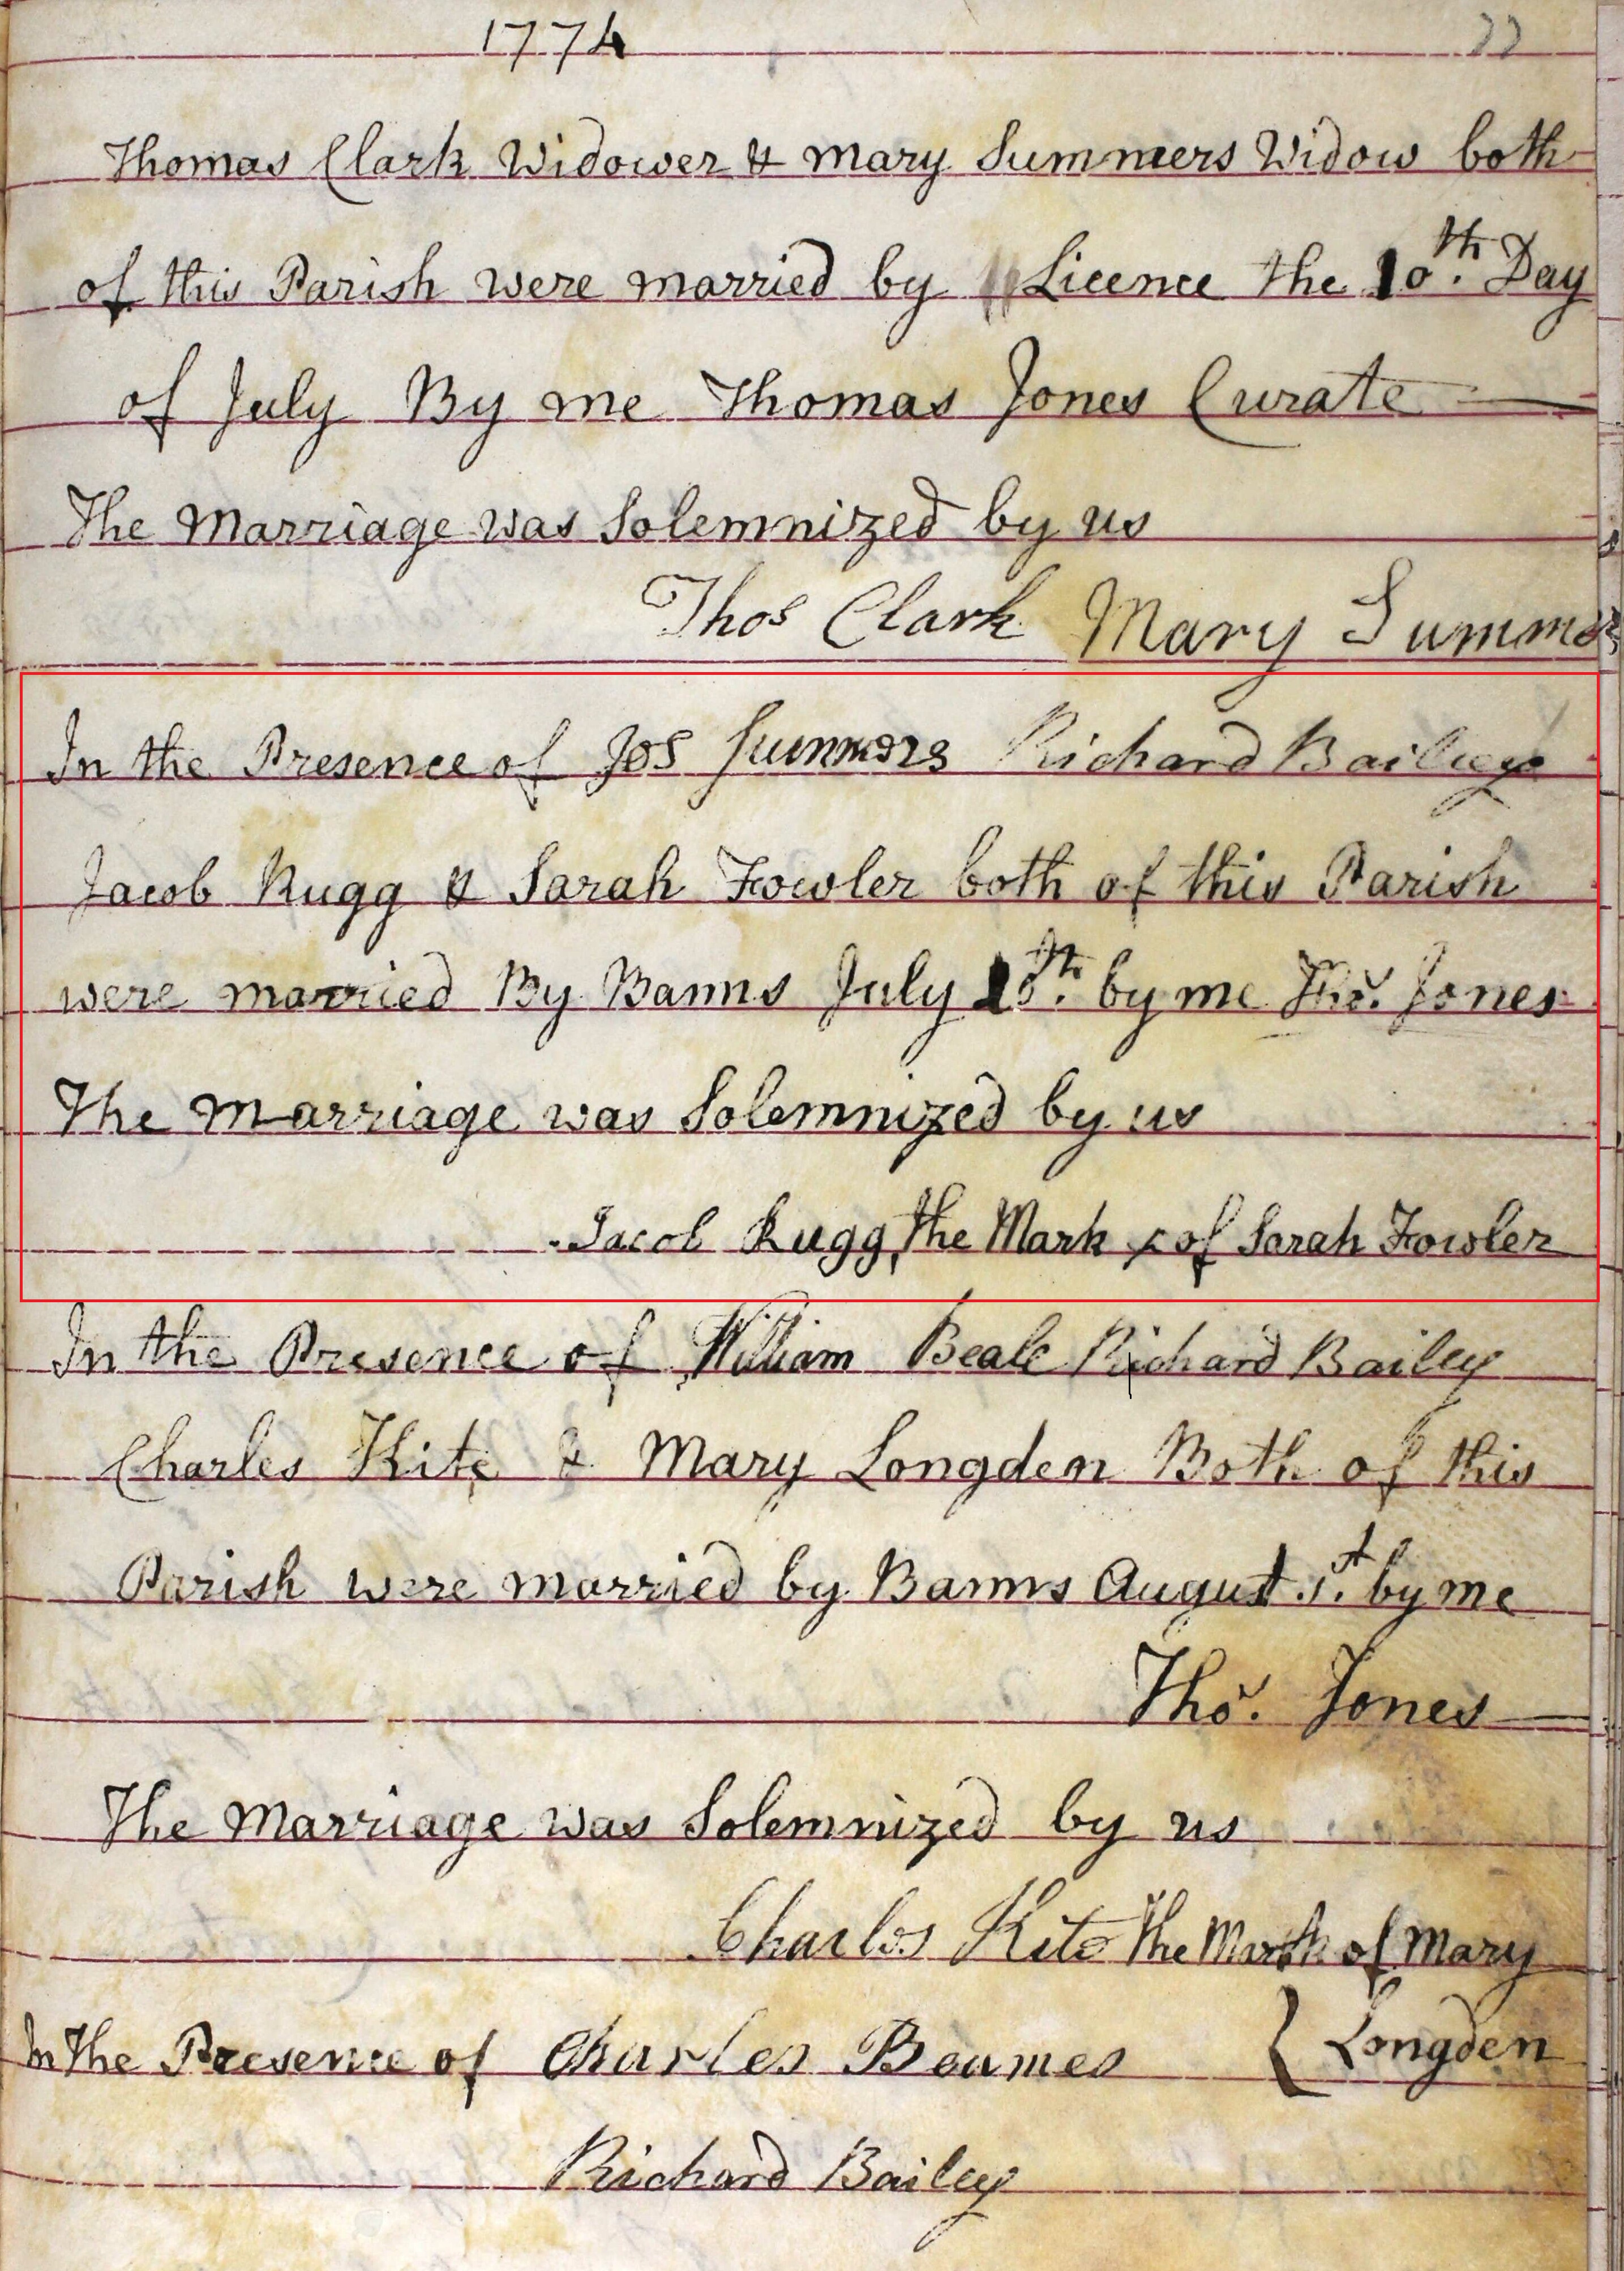 1774 22
Thomas Clark Widower & Mary Summers Widow both
of this Parish were married by Licence the 10th. Day
of July By me Thomas Jones Curate
The Marriage was Solemnized by us
Thos Clark Mary Summers
In the Presence of Jos Summers Richard Bailey
Jacob Rugg & Sarah Fowler both of this Parish
were married By Banns July by me Thos. Jones
The Marriage was Solemnized by us
Jacob Rugg, the Mark x of Sarah Fowler
In the Presence of William Beale Richard Bailey
Charles Kite & Mary Longden Both of this
Parish were married by Banns August 1st. by me
Thos. Jones
The Marriage was Solemnized by us
Charles Kite The Mark of Mary
In The Presence of Charles Beames { Longden
Richard Bailey